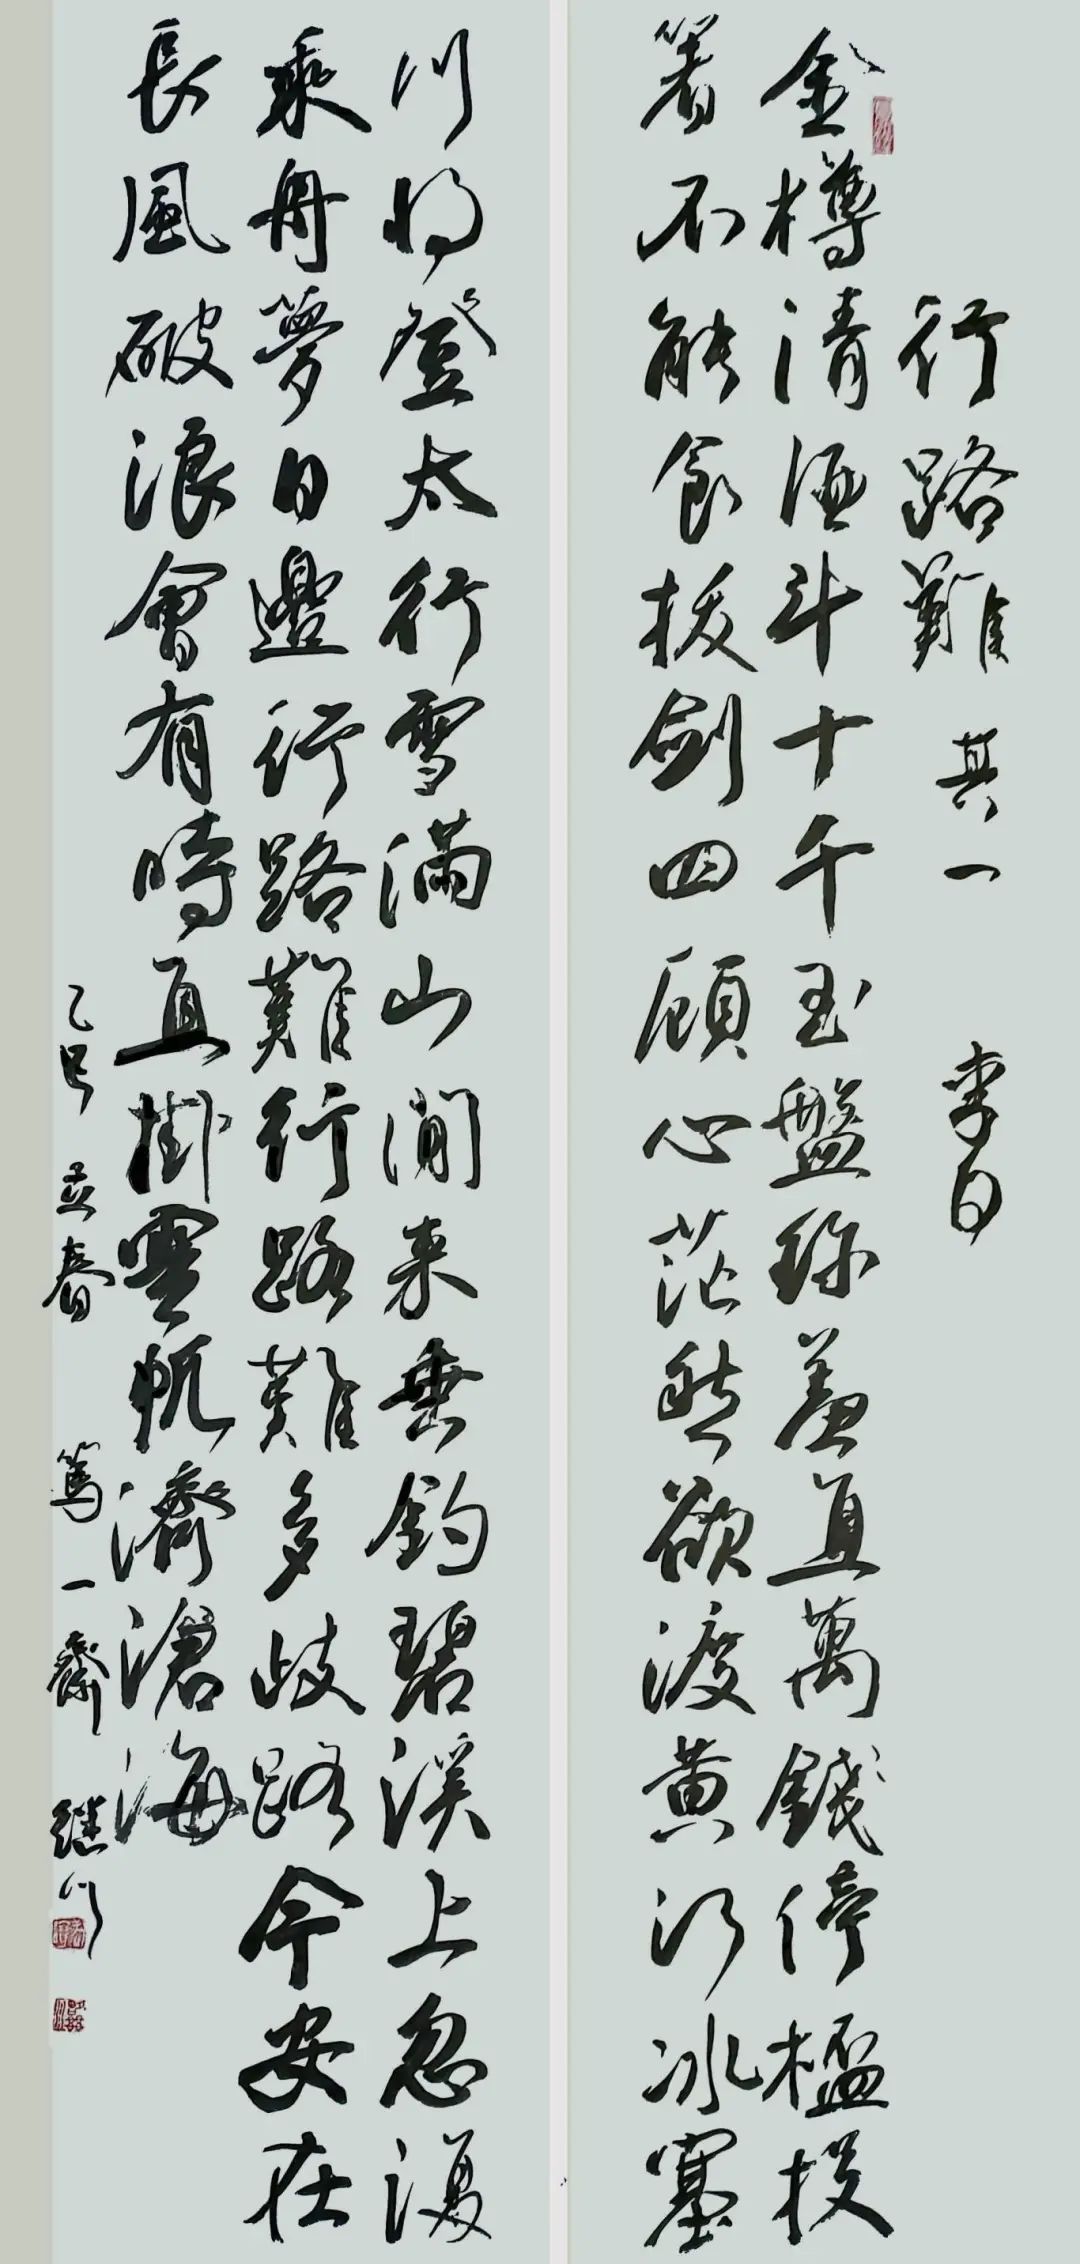 行路難 其一 李白
金樽清酒斗十千玉盤珍羞直萬錢停杯投
箸不能食拔劍四顧心茫然欲渡黄河冰塞
川将登太行雪滿山閒来垂釣碧溪上忽復
乘舟夢日邊行路難行路難多歧路今安在
長風破浪會有時直掛雲帆濟滄海
乙巳 立春 篤一齋 继川